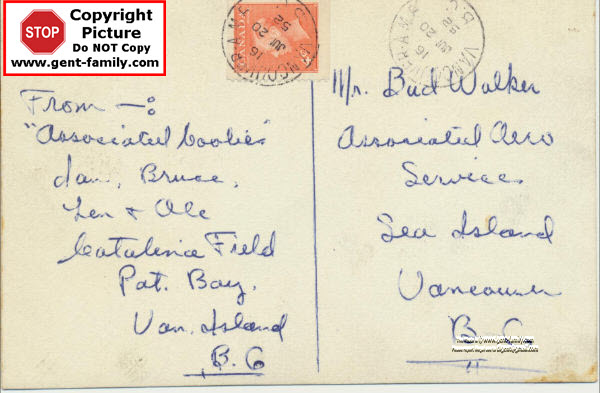 STOP
Copyright
Picture
Do NOT Copy
www.gent-family.com
CANADA
From —:
"Associated boobies"
Ian, Bruce,
Len + Ole
Catalena Field
Pat. Bay,
Van. Island
B.C
VANCOUVER
16
JUL 20
52
B.C.
Mr. Bud Walker
Associated Aero
Services
Sea Island
Vancouver
B.C